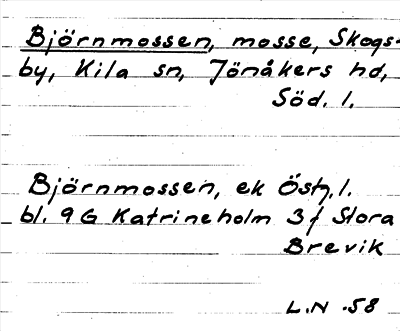 Björnmossen, mosse, Skogs-
by, Kila sn, Jönåkers hd,
Söd. l.
Björnmossen, ek Östg. l.
bl. 9G Katrineholm 3f Stora
Brevik
L.N -58